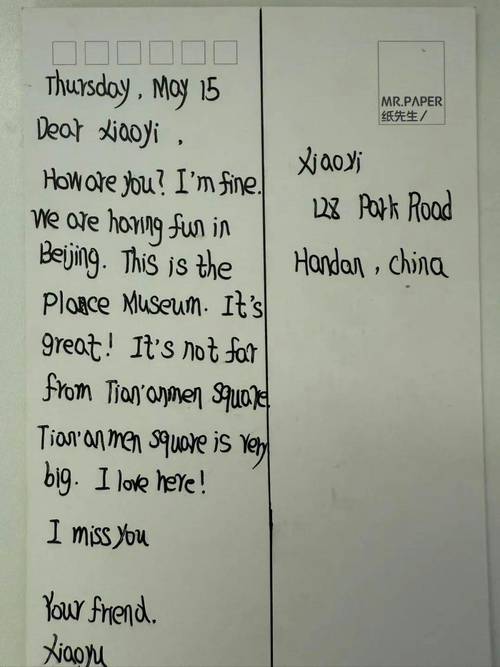 Thursday, May 15
Dear xiaoyi,
How are you? I'm fine.
We are having fun in
Beijing. This is the
Plance Museum. It's
great! It's not far
from Tian'anmen Square.
Tian'anmen square is very
big. I love here!
I miss you
Your friend.
Xiaoyu
MR.PAPER
纸先生/
Xiaoyi
128 Park Road
Handan, china